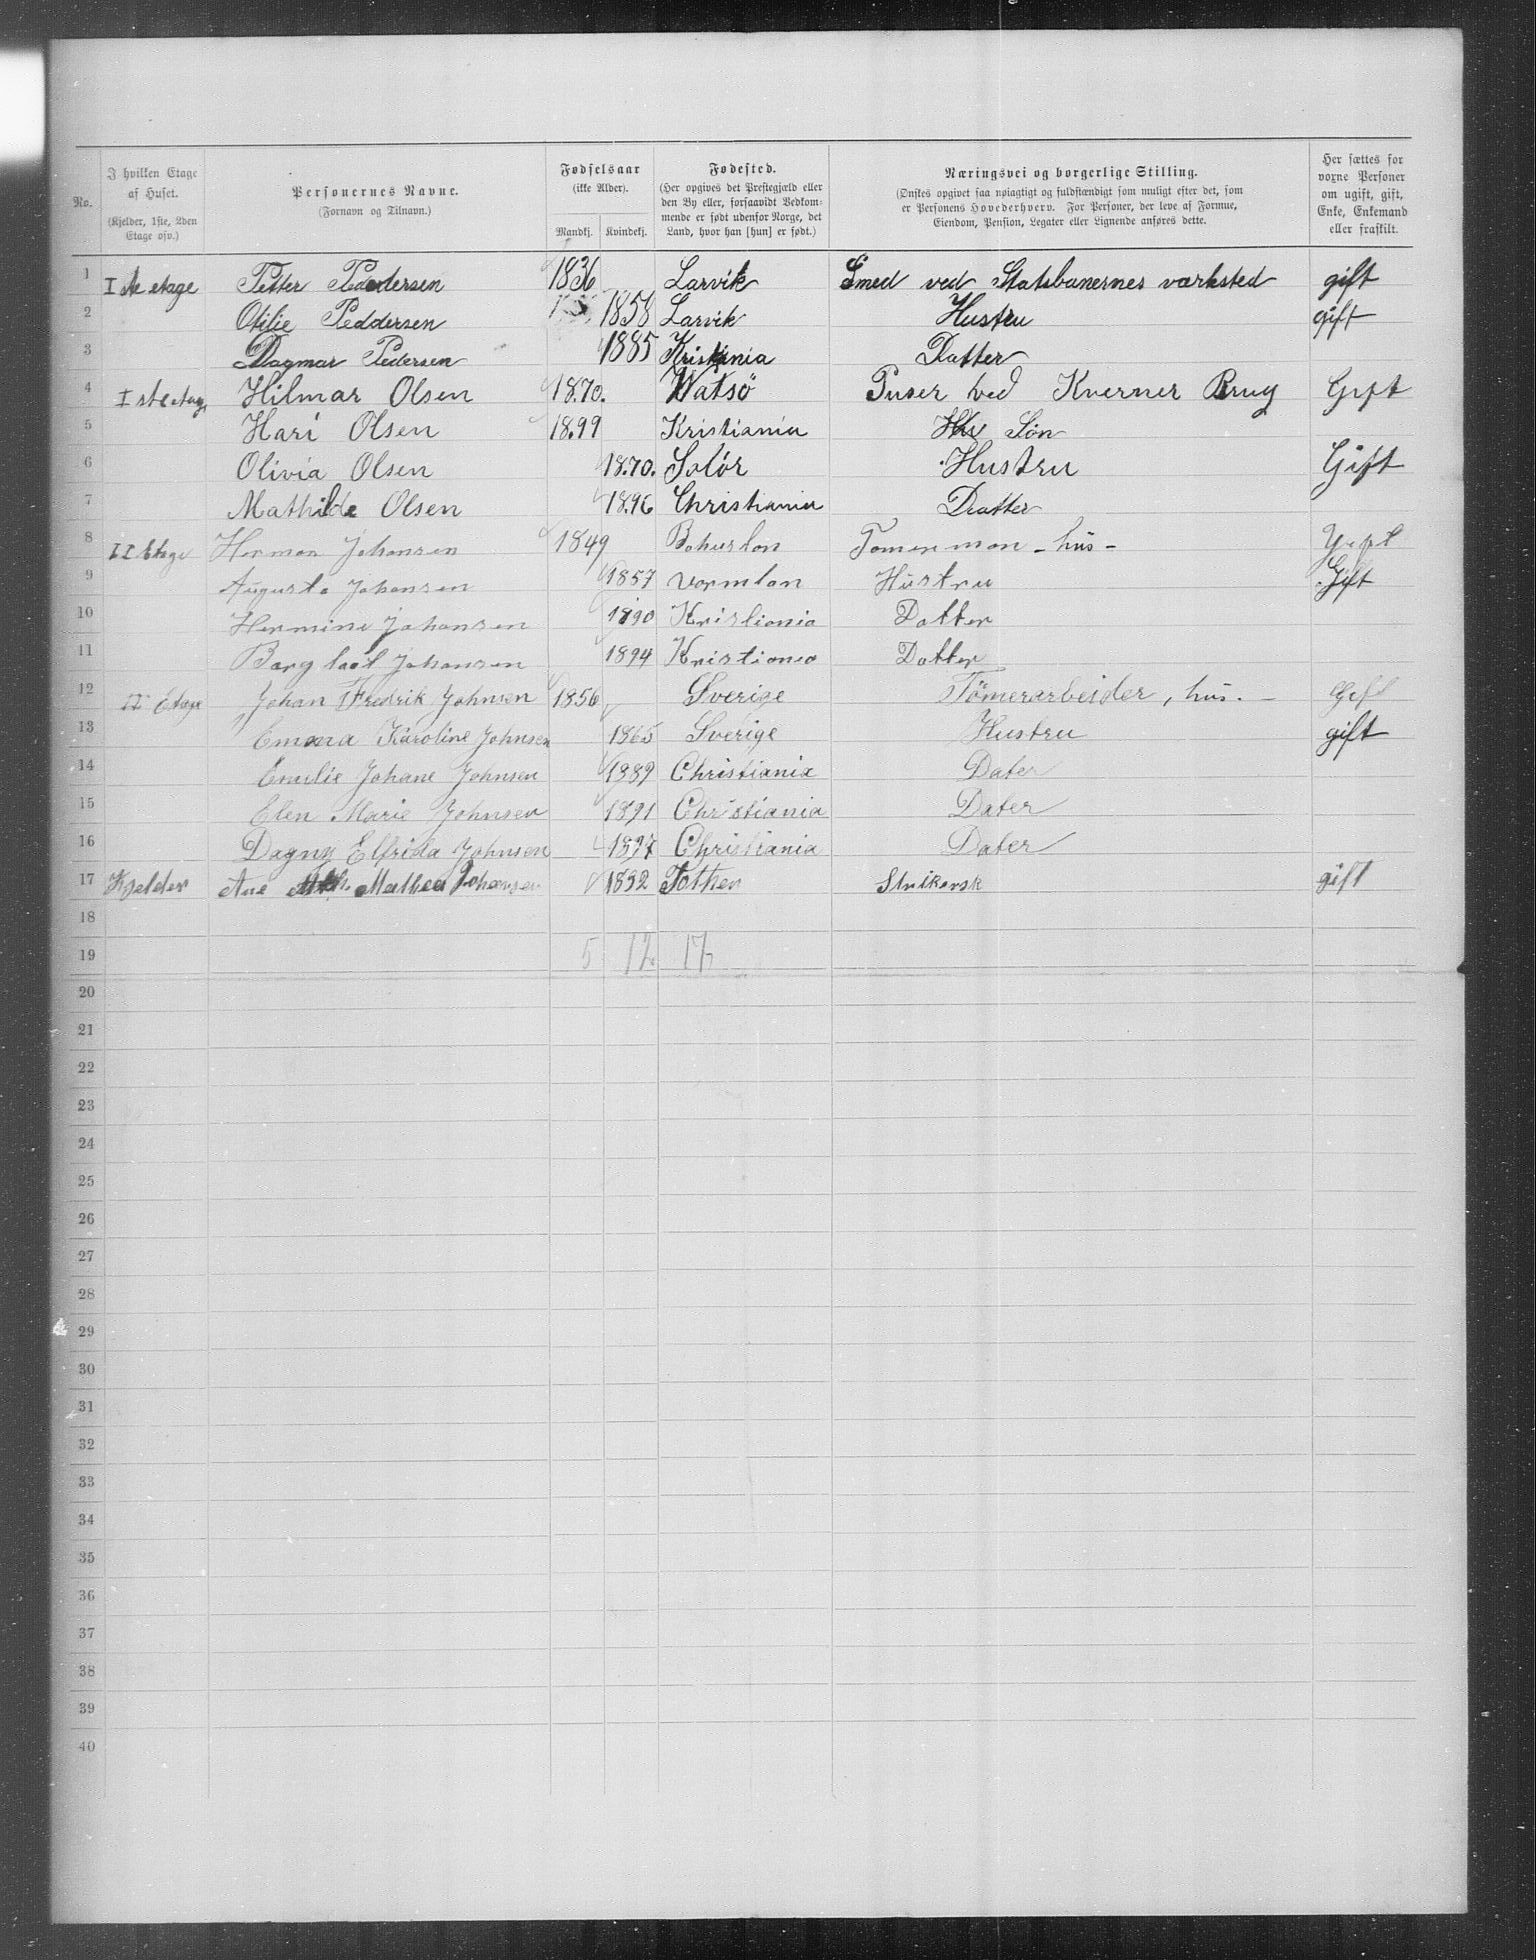 No. I hvilken Etage af Huset. (Kjelder, 1ste, 2den Etage osv.) Personernes Navne. (Fornavn og Tilnavn.) Fødselsaar (ikke Alder). Mandkj. Kvindekj. Fødested. (Her opgives det Prestegjæld eller den By eller, forsaavidt Vedkommende er født udenfor Norge, det Land, hvor han [hun] er født.) Næringsvei og borgerlige Stilling. (Ønskes opgivet saa nøiagtigt og fuldstændigt som muligt efter det, som er Personens Hovederhverv. For Personer, der leve af Formue, Eiendom, Pension, Legater eller Lignende anføres dette. Her sættes for voxne Personer om ugift, gift, Enke, Enkemand eller fraskilt.
1 I ste etage Petter Peddersen 1836 Larvik Smed ved Statsbanernes værksted gift
2 Otilie Peddersen 1858 Larvik Hustru gift
3 Dagmar Pedersen 1885 Kristiania Datter
4 I ste etage Hilmar Olsen 1870. Watsö Puser ved Kverner Brug Gift
5 Hari Olsen 1899 Kristiania Søn
6 Olivia Olsen 1870. Solör Hustru Gift
7 Mathilde Olsen 1896 Christiania Datter
8 II Etage Herman Johansen 1849 Bohuslan Tomermon - hus - Gift
9 Augusta Johansen 1857 Vormlan Hustru Gift
10 Hermine Johansen 1890 Kristiania Datter
11 Johansen 1894 Kristiania Datter
12 II Etage Johan Fredrik Johnsen 1856 Sverige Tömerarbeider, hus. - Gift
13 Emma Karoline Johnsen 1865 Sverige Hustru gift
14 Emilie Johane Johnsen 1889 Christiania Dater
15 Elen Marie Johnsen 1891 Christiania Dater
16 Dagny Elfrida Johnsen 1897 Christiania Dater
17 Kjelder Ane Mathea Johansen 1832 Tothen Strikersk gift
18
19 5 12 17
20
21
22
23
24
25
26
27
28
29
30
31
32
33
34
35
36
37
38
39
40